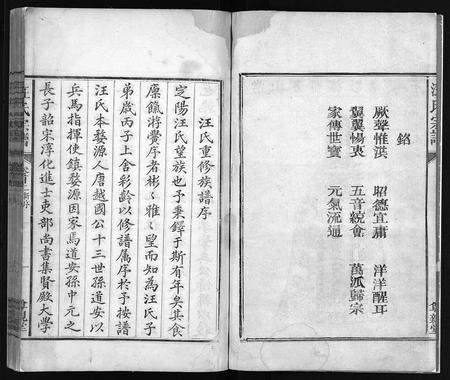 銘
厥聲惟淇 昭德宜肅 洋洋醒耳
翼翼惕衷 五音統會 萬派歸宗
家傳世寶 元氣流通
汪氏重修族譜序
定陽汪氏望族也予秉鐸于斯有年矣其食
廩餼將黌序者彬彬雅雅望而知為汪氏子
弟歲丙子上舍彩齡以修譜屬序於予按譜
汪氏本婺源人唐越國公十三世孫道安以
兵馬指揮使鎮婺源因家馬道安孫中元之
長子韶宋淳化進士吏部尚書集賢殿大學